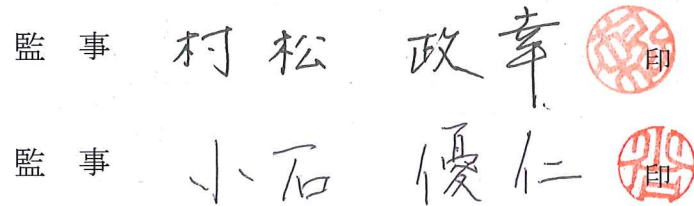 監 事 村松 政幸 印
監 事 小石 優仁 印